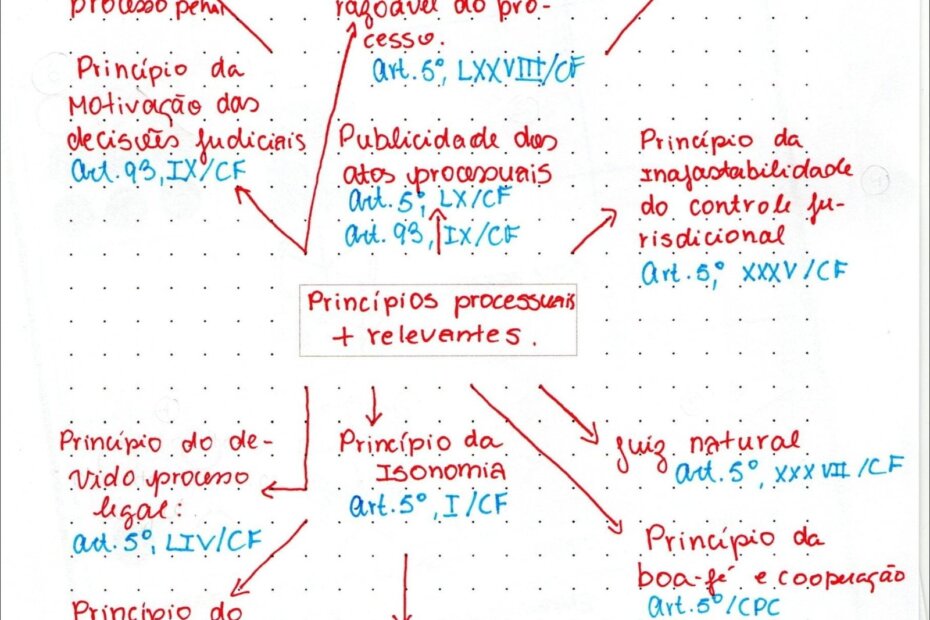 processo penal
razoável do pro-
cesso.
Art. 5º, LXXVIII/CF
Princípio da
Motivação das
decisões judiciais
Art. 93, IX/CF
Publicidade dos
atos processuais
Art. 5º, LX/CF
Art. 93, IX/CF
Princípio da
Inafastabilidade
do controle ju-
risdicional
Art. 5º, XXXV/CF
Princípios processuais
+ relevantes.
Princípio do de-
vido processo
legal:
art. 5º, LIV/CF
Princípio da
Isonomia
Art. 5º, I/CF
Juiz natural
Art. 5º, XXXVII/CF
Princípio da
boa-fé e cooperação
Art. 5º/CPC
Princípio do